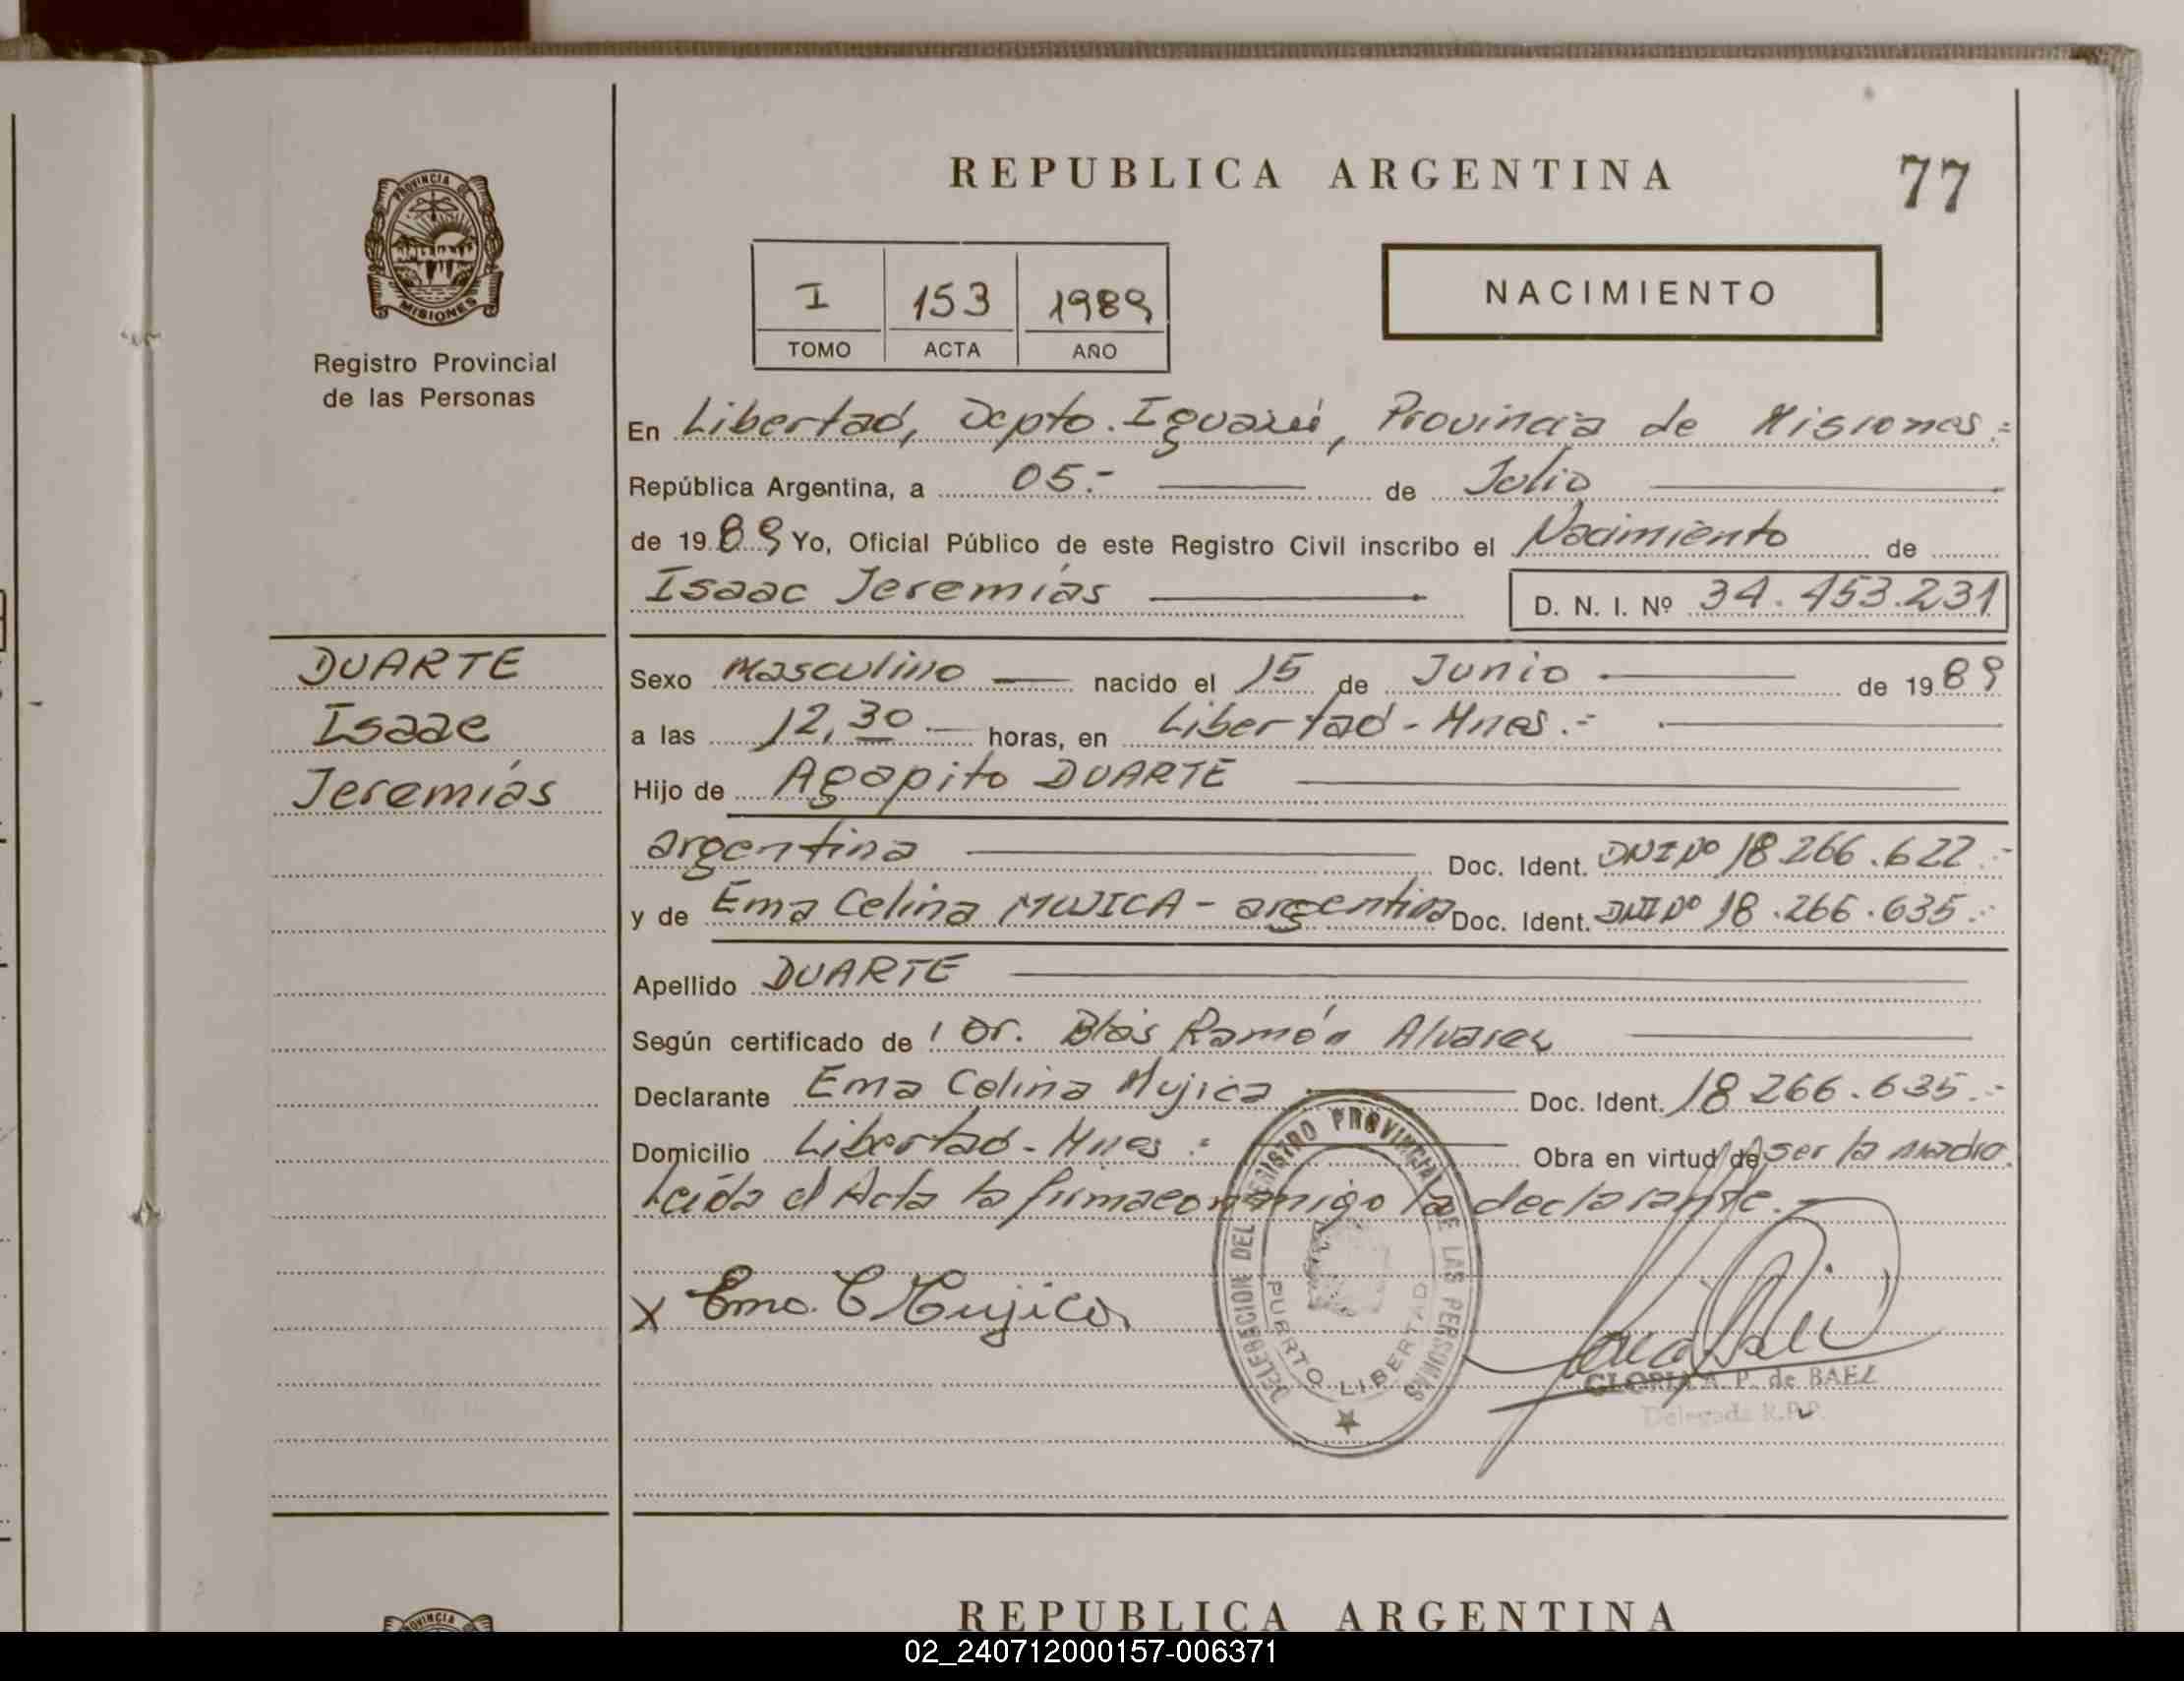 REPUBLICA ARGENTINA
77
PROVINCIA DE
MISIONES
Registro Provincial
de las Personas
I 153 1989
TOMO ACTA AÑO
NACIMIENTO
En Libertad, Depto. Iguazú, Provincia de Misiones.=
República Argentina, a 05.- de Julio
de 1989 Yo, Oficial Público de este Registro Civil inscribo el Nacimiento de
Isaac Jeremías D. N. I. Nº 34.453.231
DUARTE
Isaac
Jeremías
Sexo Masculino nacido el 15 de Junio de 1989
a las 12,30 horas, en Libertad - Mnes.=
Hijo de Agapito DUARTE
argentina Doc. Ident. DNI Nº 18.266.622.-
y de Ema Celina MUJICA - argentina Doc. Ident. DNI Nº 18.266.635.-
Apellido DUARTE
Según certificado de : Dr. Blás Ramón Alvarez
Declarante Ema Celina Mujica Doc. Ident. 18.266.635.-
Domicilio Libertad - Mnes : Obra en virtud de ser la madre.
Leída el Acta la firma conmigo la declarante.-
X Ema. C Mujica
DELEGACION DEL REGISTRO PROVINCIAL DE LAS PERSONAS
PUERTO LIBERTAD
GLORIA A. P. de BAEZ
Delegada R.P.P.
PROVINCIA
REPUBLICA ARGENTINA
02_240712000157-006371